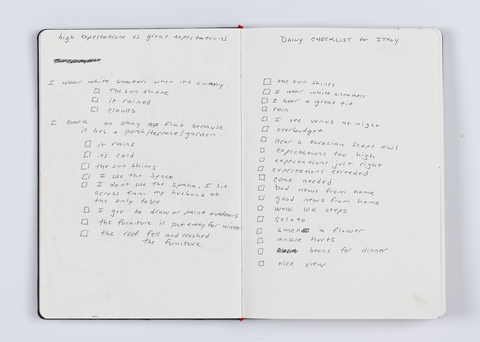 high expectations vs great expectations
I wear white sneakers when it's sunny:
The sun shone
It rained
clouds
I book an okay flat because
it has a porch/terrace/garden:
it rains
its cold
the sun shines
I use the space
I dont use the space. I sit
across from my husband at
the only table
I get to draw or paint outdoors
the furniture is put away for winter
the roof fell and crushed
the furniture
DAILY CHECKLIST for ITALY
the sun shines
I wear white sneakers
I hear a great tit
rain
I see venus at night
overbudget
Hear a eurasian scops owl
expectations too high
expectations just right
expectations exceeded
coat needed
bad news from home
good news from home
walk steps
gelato
smell a flower
ankle hurts
beans for dinner
nice view